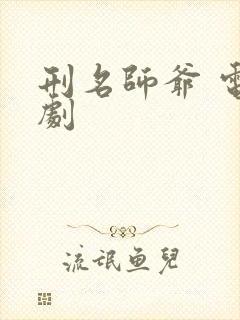 刑名師爺 電
劇
流氓魚兒